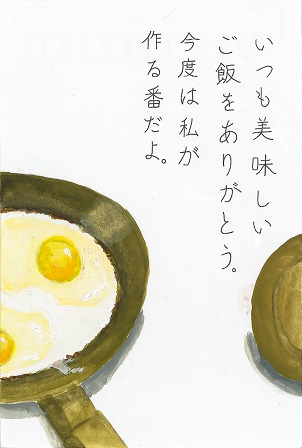 いつも美味しい
ご飯をありがとう。
今度は私が
作る番だよ。